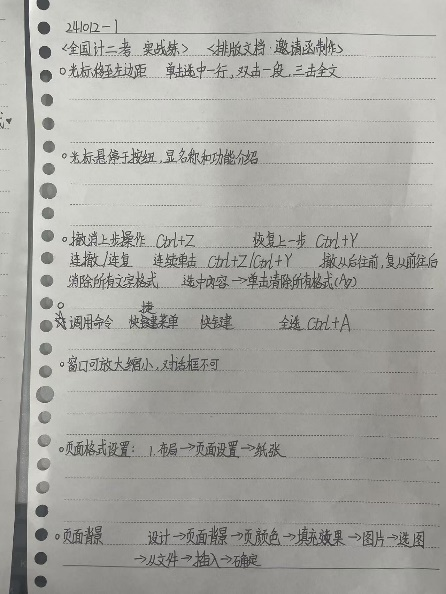 241012-1
<全国计二考 实战练> <排版文档·邀请函制作>
○光标移至左边距 单击选中一行,双击一段,三击全文
○光标悬停于按纽,显名称和功能介绍
○撤消上步操作 Ctrl+Z 恢复上一步 Ctrl+Y
连撤/连复 连续单击 Ctrl+Z/Ctrl+Y 撤从后往前,复从前往后
消除所有文字格式 选中内容→单击清除所有格式(Aρ)
○
☆调用命令 快捷菜单 快捷键 全选 Ctrl+A
○窗口可放大缩小,对话框不可
○页面格式设置: 1.布局→页面设置→纸张
○页面背景 设计→页面背景→页颜色→填充效果→图片→选图
→从文件→插入→确定